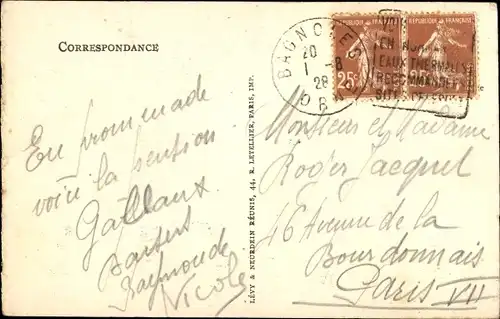 CORRESPONDANCE
En promenade
voici la pension
Gaillaux
Baisers
Raymonde
Nicole
LÉVY & NEURDEIN RÉUNIS, 44, R. LETELLIER, PARIS, IMP.
BAGNOLES
20
1 -8
28
OR
REPUBLIQUE FRANÇAISE
25c
REPUBLIQUE FRANÇAISE
EN NORMAN
EAUX THERMALES
RECOMMANDÉES
Monsieur et Madame
Roger Jacquet
16 Avenue de la
Bourdonnais
Paris VII